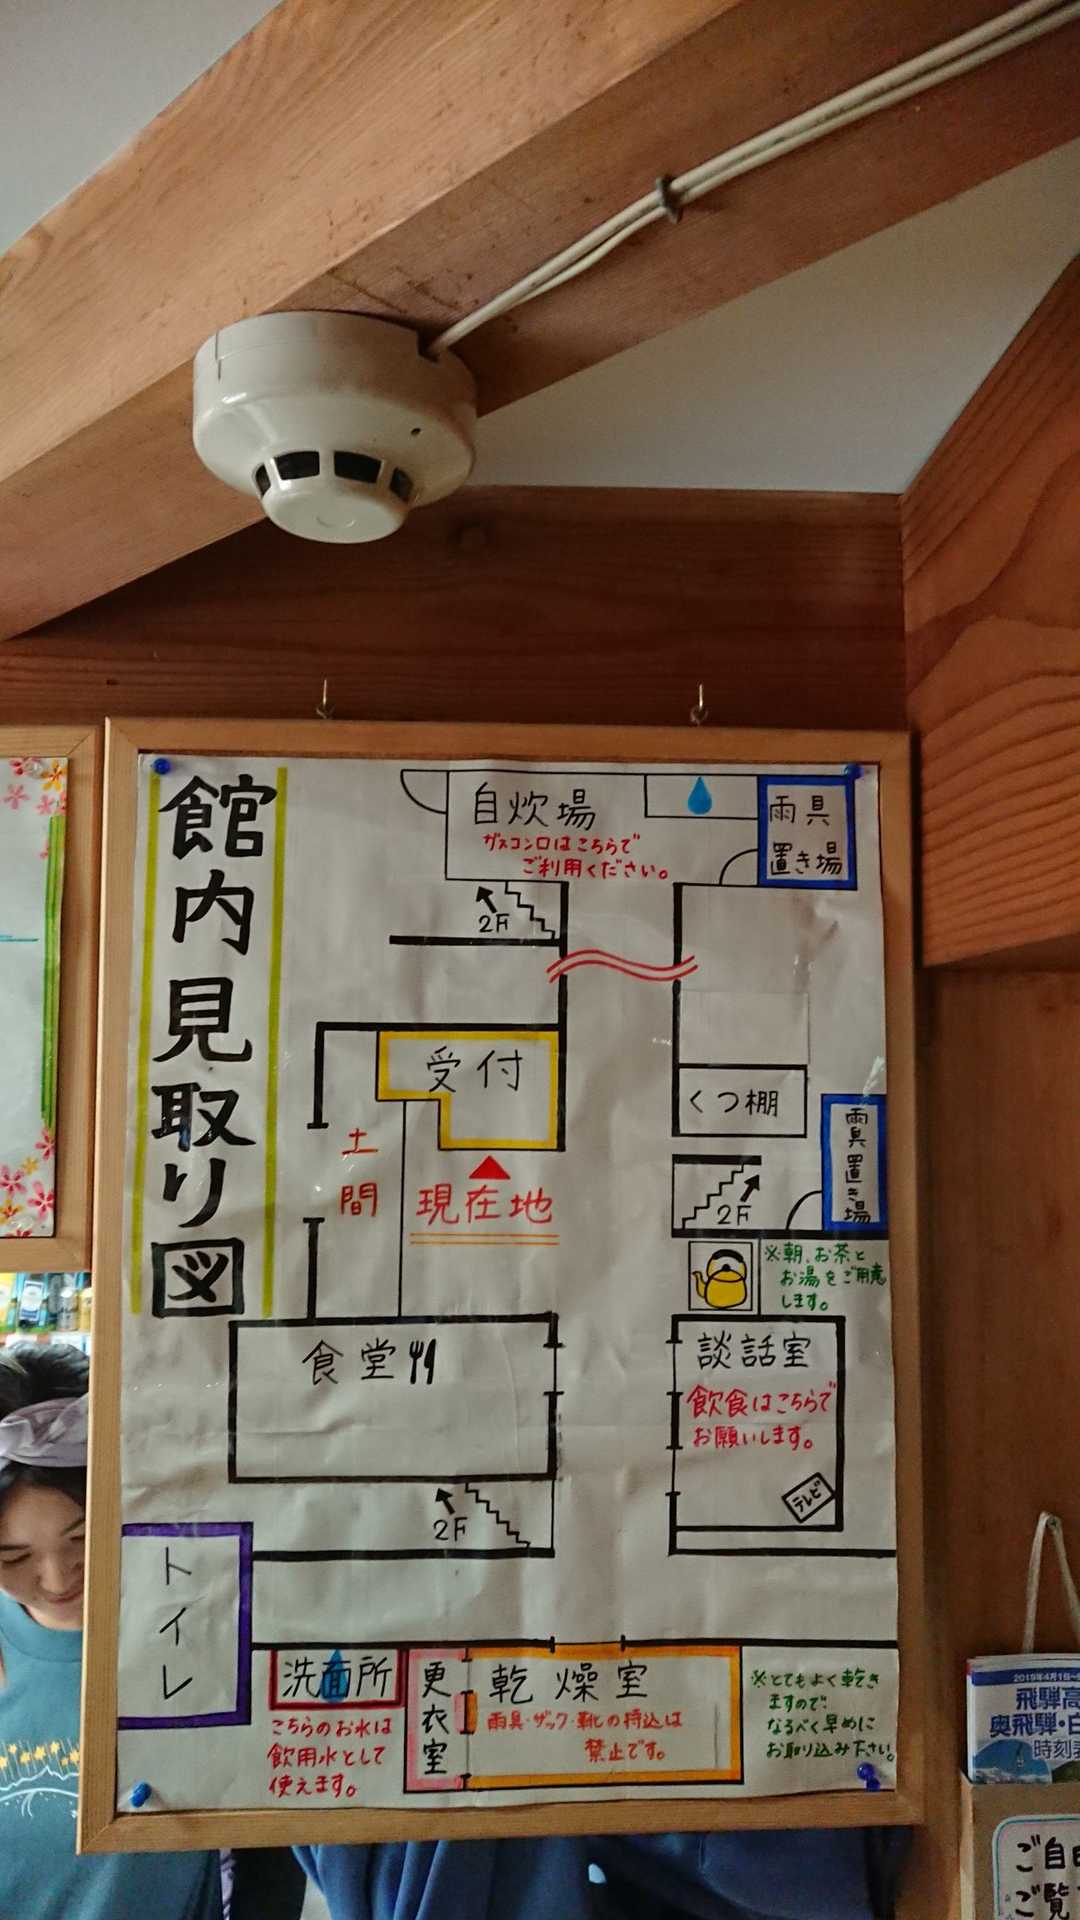 館内見取り図
自炊場
ガスコンロはこちらで
ご利用ください。
雨具
置き場
2F
受付
土間
現在地
くつ棚
雨具置き場
2F
※朝、お茶と
お湯をご用意
します。
食堂
談話室
飲食はこちらで
お願いします。
テレビ
2F
トイレ
洗面所
こちらのお水は
飲用水として
使えます。
更衣室
乾燥室
雨具・ザック・靴の持込は
禁止です。
※とてもよく乾き
ますので、
なるべく早めに
お取り込み下さい。
2019年4月1日~
飛騨高
奥飛騨・白
時刻表
ご自由
ご覧